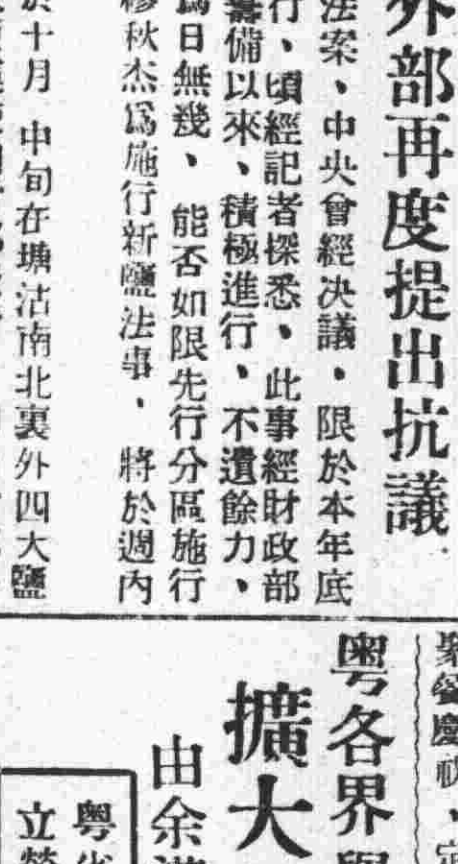 外部再度提出抗議
法案、中央會經决議、限於本年底
行、頃經記者探悉、此事經財政部
籌備以來、積極進行、不遺餘力、
爲日無幾、能否如限先行分區施行
穆秋杰爲施行新鹽法事、將於週內
於十月中旬在塘沽南北裏外四大鹽
聚餐慶祝、定
粵各界
擴大
由余
粵
立